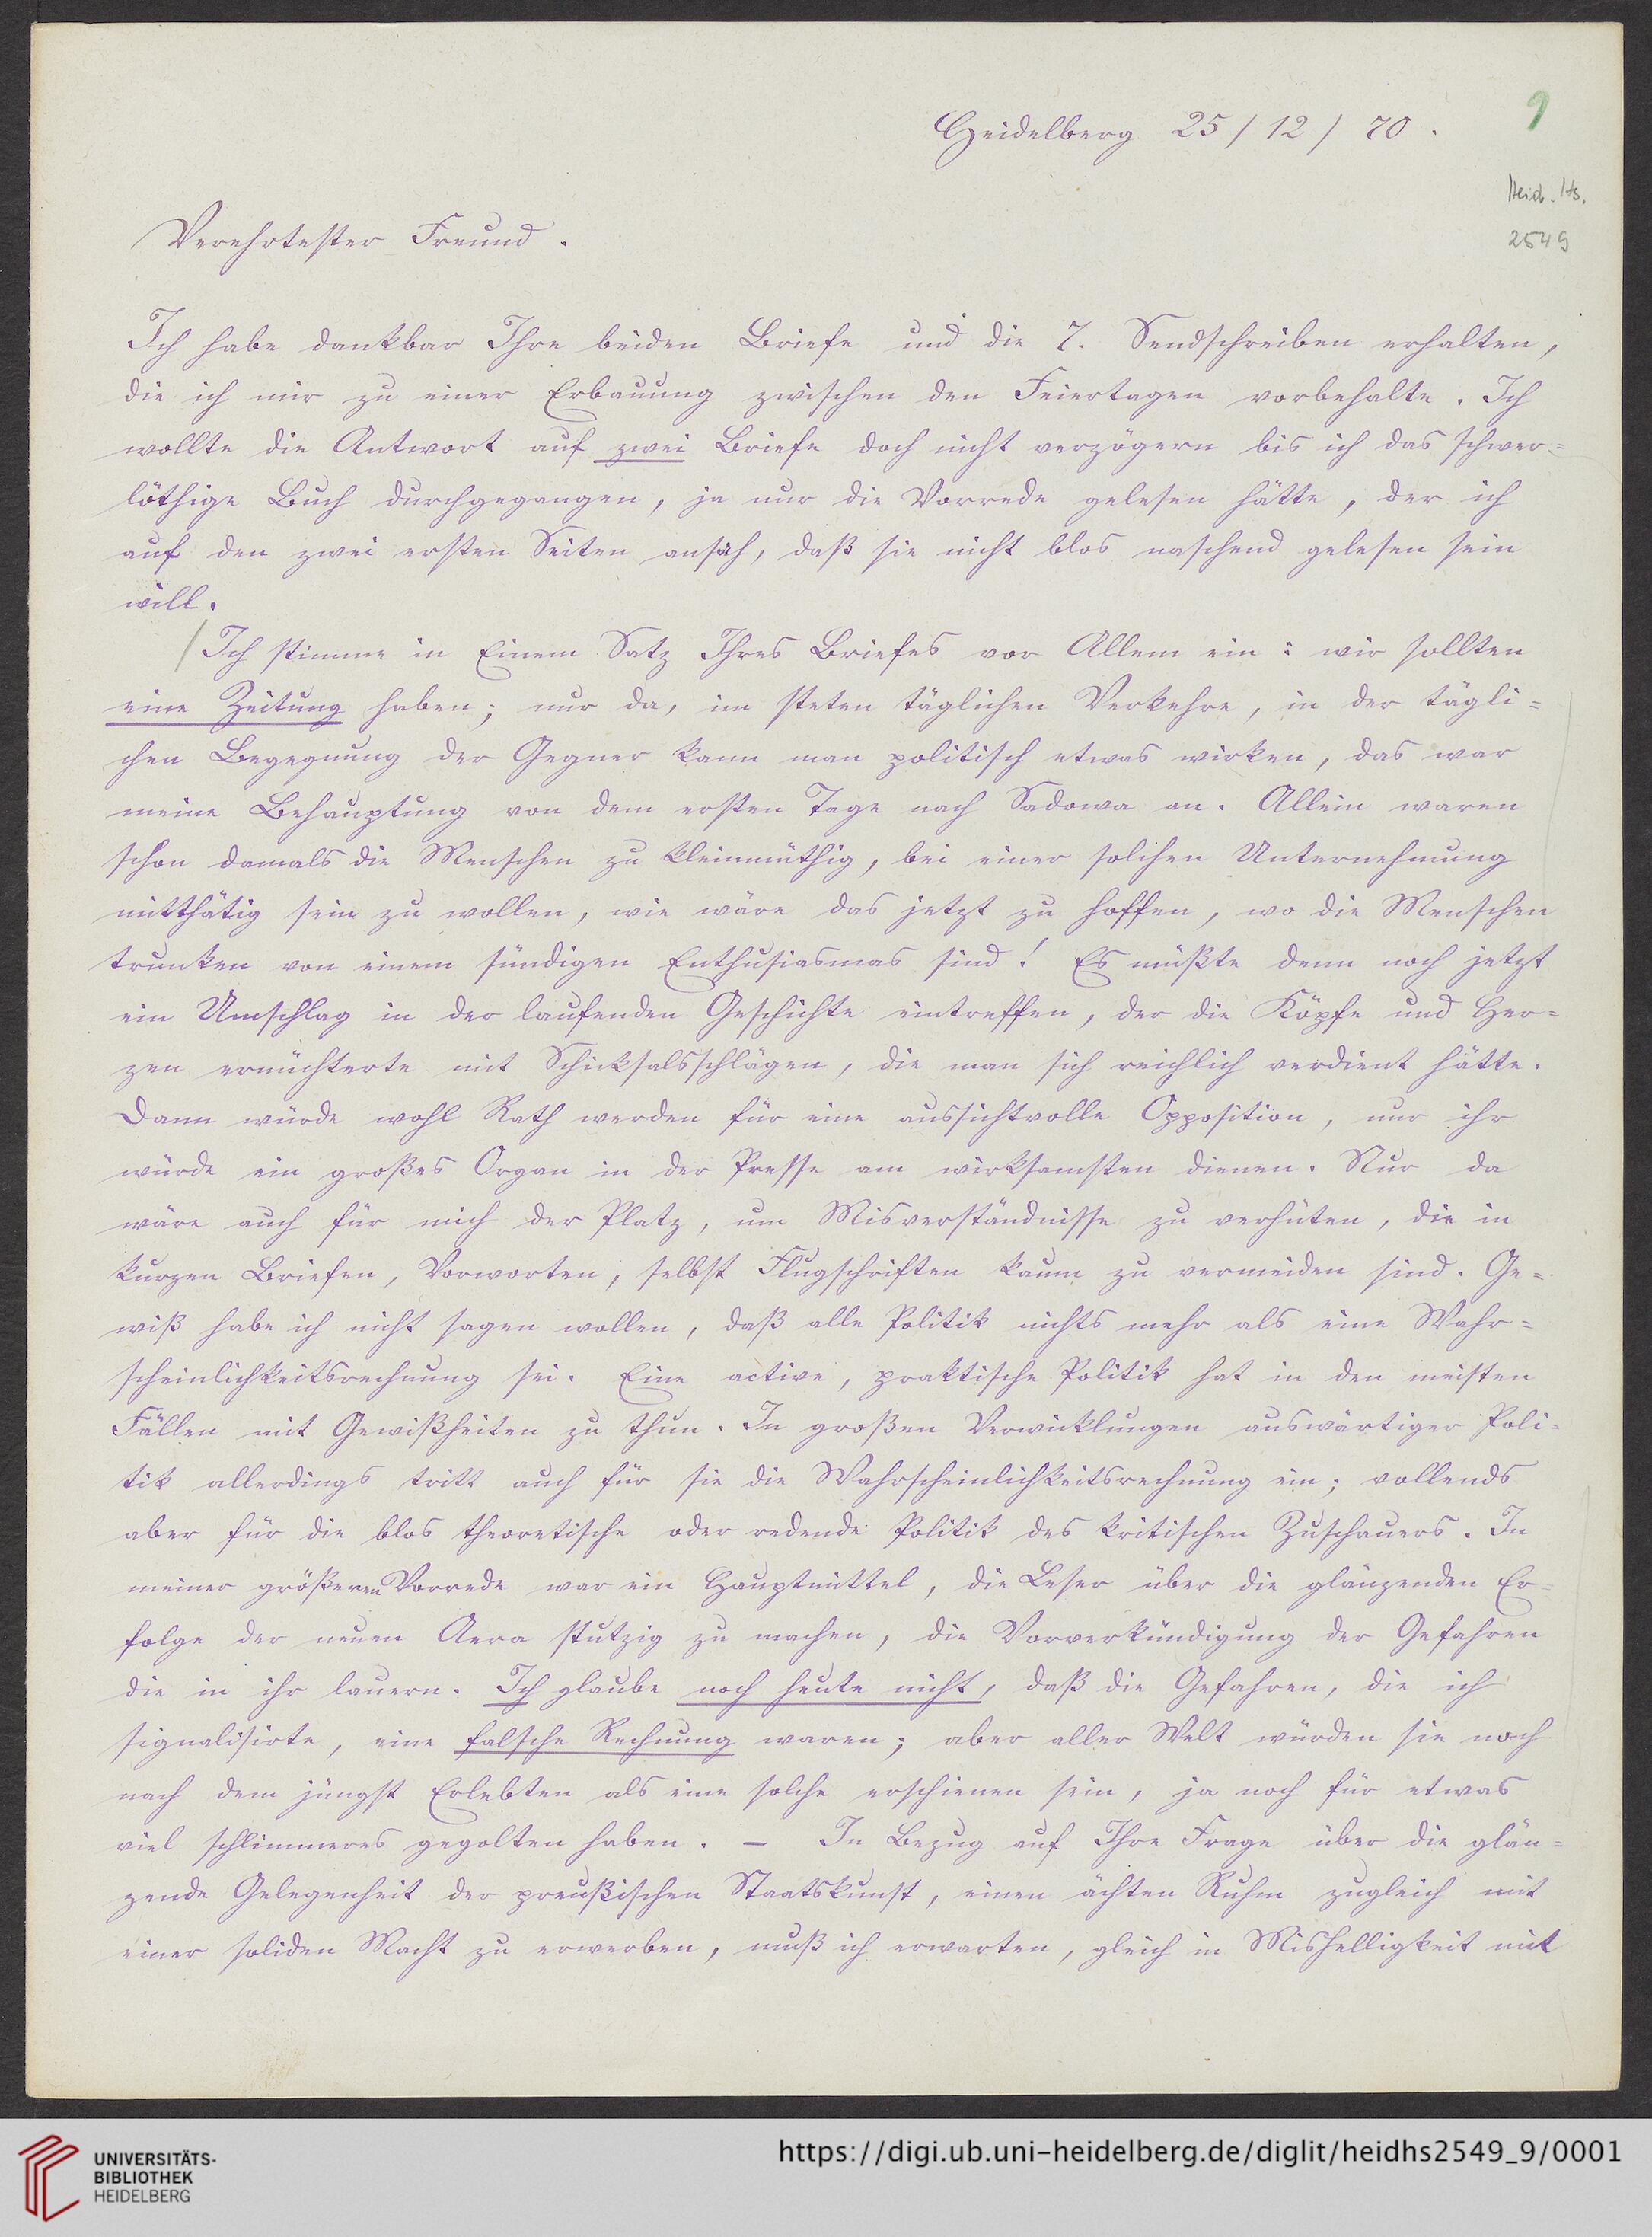 Heidelberg 25/12/70.
9
Heid. Hs.
2549
Verehrtester Freund.
Ich habe dankbar Ihre beiden Briefe und die 7. Sendschreiben erhalten,
die ich mir zu einer Erbauung zwischen den Feiertagen vorbehalte. Ich
wollte die Antwort auf zwei Briefe doch nicht verzögern bis ich das schwer=
löthige Buch durchgegangen, ja nur die Vorrede gelesen hätte, der ich
auf den zwei ersten Seiten ansah, daß sie nicht blos naschend gelesen sein
will.
Ich stimme in Einem Satz Ihres Briefes vor Allem ein: wir sollten
eine Zeitung haben; nur da, im steten täglichen Verkehre, in der tägli=
chen Begegnung der Gegner kann man politisch etwas wirken, das war
meine Behauptung von dem ersten Tage nach Sadowa an. Allein waren
schon damals die Menschen zu kleinmüthig, bei einer solchen Unternehmung
mitthätig sein zu wollen, wie wäre das jetzt zu hoffen, wo die Menschen
trunken von einem sündigen Enthusiasmas sind! Es müßte denn noch jetzt
ein Umschlag in der laufenden Geschichte eintreffen, der die Köpfe und Her=
zen ernüchterte mit Schicksalsschlägen, die man sich reichlich verdient hätte.
Dann würde wohl Rath werden für eine aussichtvolle Opposition, nur ihr
würde ein großes Organ in der Presse am wirksamsten dienen. Nur da
wäre auch für mich der Platz, um Misverständnisse zu verhüten, die in
kurzen Briefen, Vorworten, selbst Flugschriften kaum zu vermeiden sind. Ge=
wiß habe ich nicht sagen wollen, daß alle Politik nichts mehr als eine Wahr=
scheinlichkeitsrechnung sei. Eine active, praktische Politik hat in den meisten
Fällen mit Gewißheiten zu thun. In großen Verwicklungen auswärtiger Poli=
tik allerdings tritt auch für sie die Wahrscheinlichkeitsrechnung ein; vollends
aber für die blos theoretische oder redende Politik des kritischen Zuschauers. In
meiner größeren Vorrede war ein Hauptmittel, die Leser über die glänzenden Er=
folge der neuen Aera stutzig zu machen, die Vorverkündigung der Gefahren
die in ihr lauern. Ich glaube noch heute nicht, daß die Gefahren, die ich
signalisirte, eine falsche Rechnung waren; aber aller Welt würden sie noch
nach dem jüngst Erlebten als eine solche erschienen sein, ja noch für etwas
viel schlimmeres gegolten haben. – In Bezug auf Ihre Frage über die glän=
zende Gelegenheit der preußischen Staatskunst, einen ächten Ruhm zugleich mit
einer soliden Macht zu erwerben, muß ich erwarten, gleich in Mishelligkeit mit
UNIVERSITÄTS-
BIBLIOTHEK
HEIDELBERG
https://digi.ub.uni-heidelberg.de/diglit/heidhs2549_9/0001